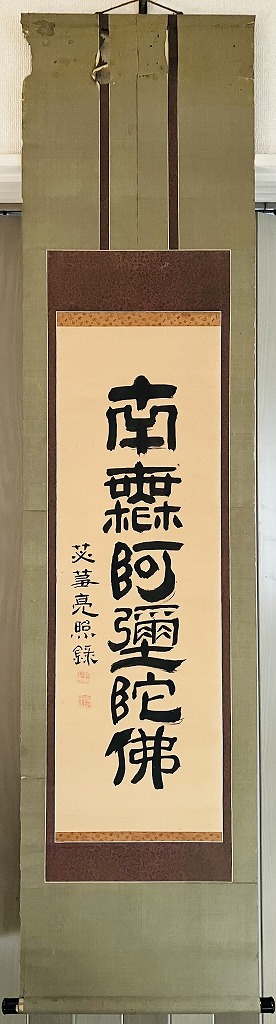 南無阿彌陀佛
苾蒭亮照錄